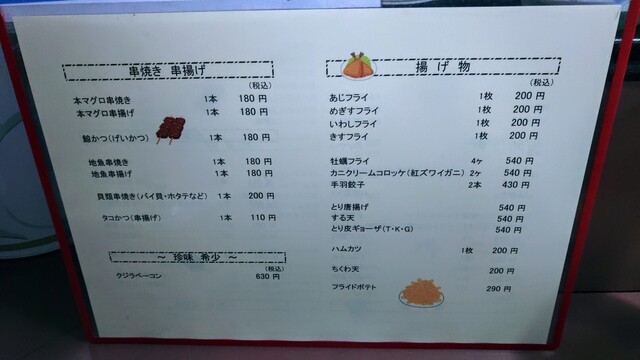 串焼き 串揚げ
(税込)
本マグロ串焼き 1本 180 円
本マグロ串揚げ 1本 180 円
鯨かつ(げいかつ) 1本 180 円
地魚串焼き 1本 180 円
地魚串揚げ 1本 180 円
貝類串焼き(バイ貝・ホタテなど) 1本 200 円
タコかつ(串揚げ) 1本 110 円
～ 珍味 希少 ～
(税込)
クジラベーコン 630 円
揚 げ 物
(税込)
あじフライ 1枚 200 円
めぎすフライ 1枚 200 円
いわしフライ 1枚 200 円
きすフライ 1枚 200 円
牡蠣フライ 4ヶ 540 円
カニクリームコロッケ(紅ズワイガニ) 2ヶ 540 円
手羽餃子 2本 430 円
とり唐揚げ 540 円
する天 540 円
とり皮ギョーザ(T・K・G) 540 円
ハムカツ 1枚 200 円
ちくわ天 200 円
フライドポテト 290 円